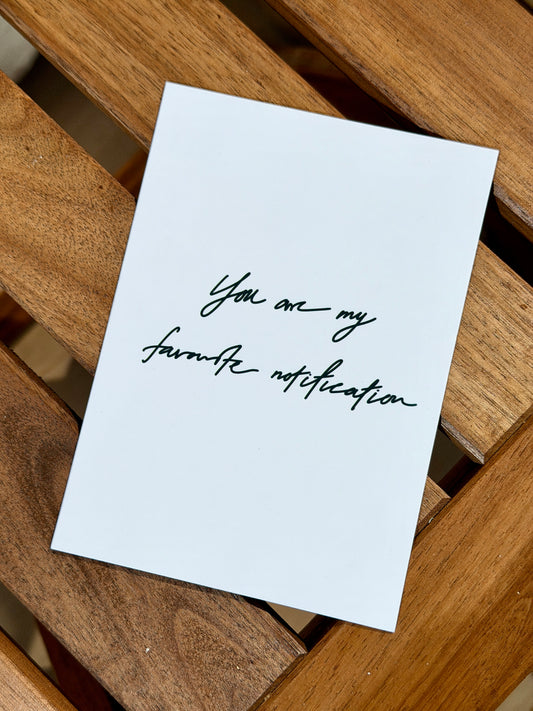 You are my
favourite notification